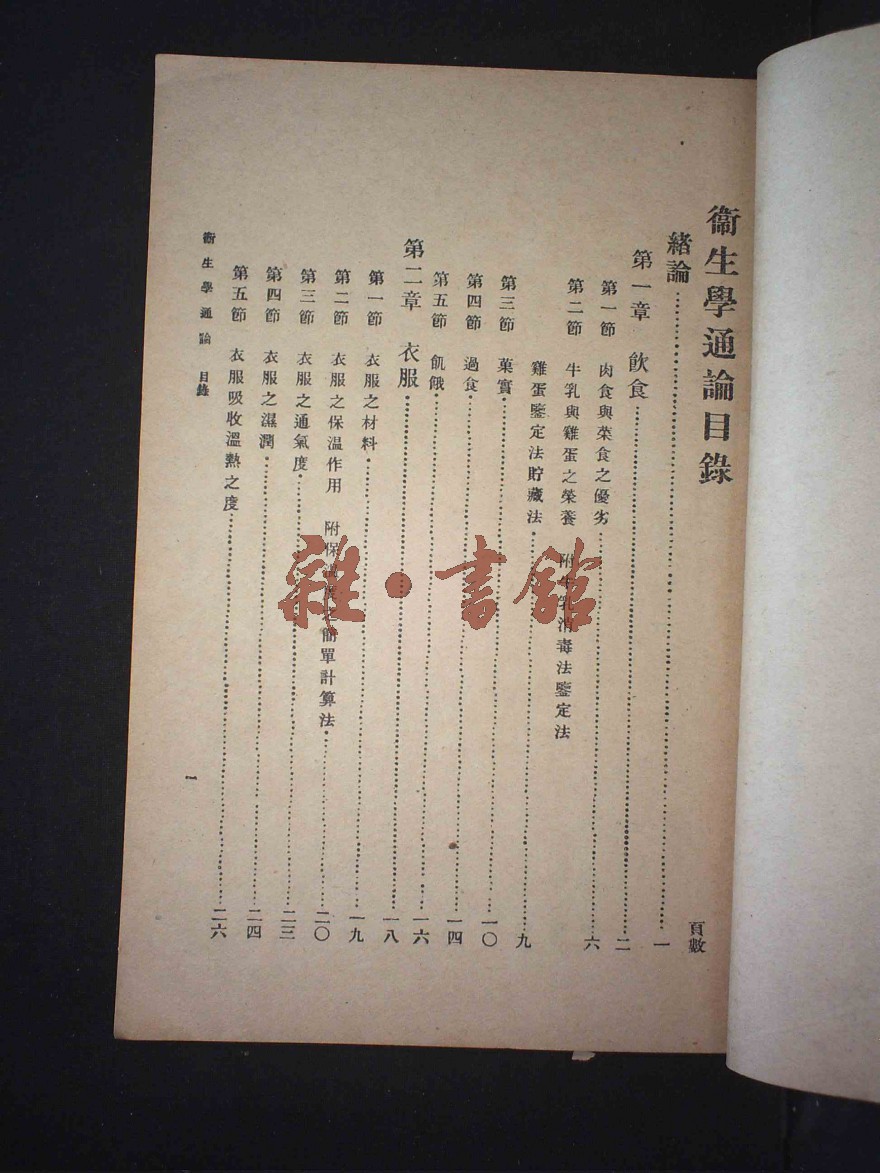 衞生學通論目錄
頁數
緒論……一
第一章 飲食……二
第一節 肉食與菜食之優劣……六
第二節 牛乳與雞蛋之榮養 附牛乳消毒法鑒定法
雞蛋鑒定法貯藏法……九
第三節 菓實……一〇
第四節 過食……一四
第五節 飢餓……一六
第二章 衣服……一八
第一節 衣服之材料……一九
第二節 衣服之保温作用 附保温度之簡單計算法……二〇
第三節 衣服之通氣度……二三
第四節 衣服之濕潤……二四
第五節 衣服吸收溫熱之度……二六
衞生學通論 目錄
一
雜·書館